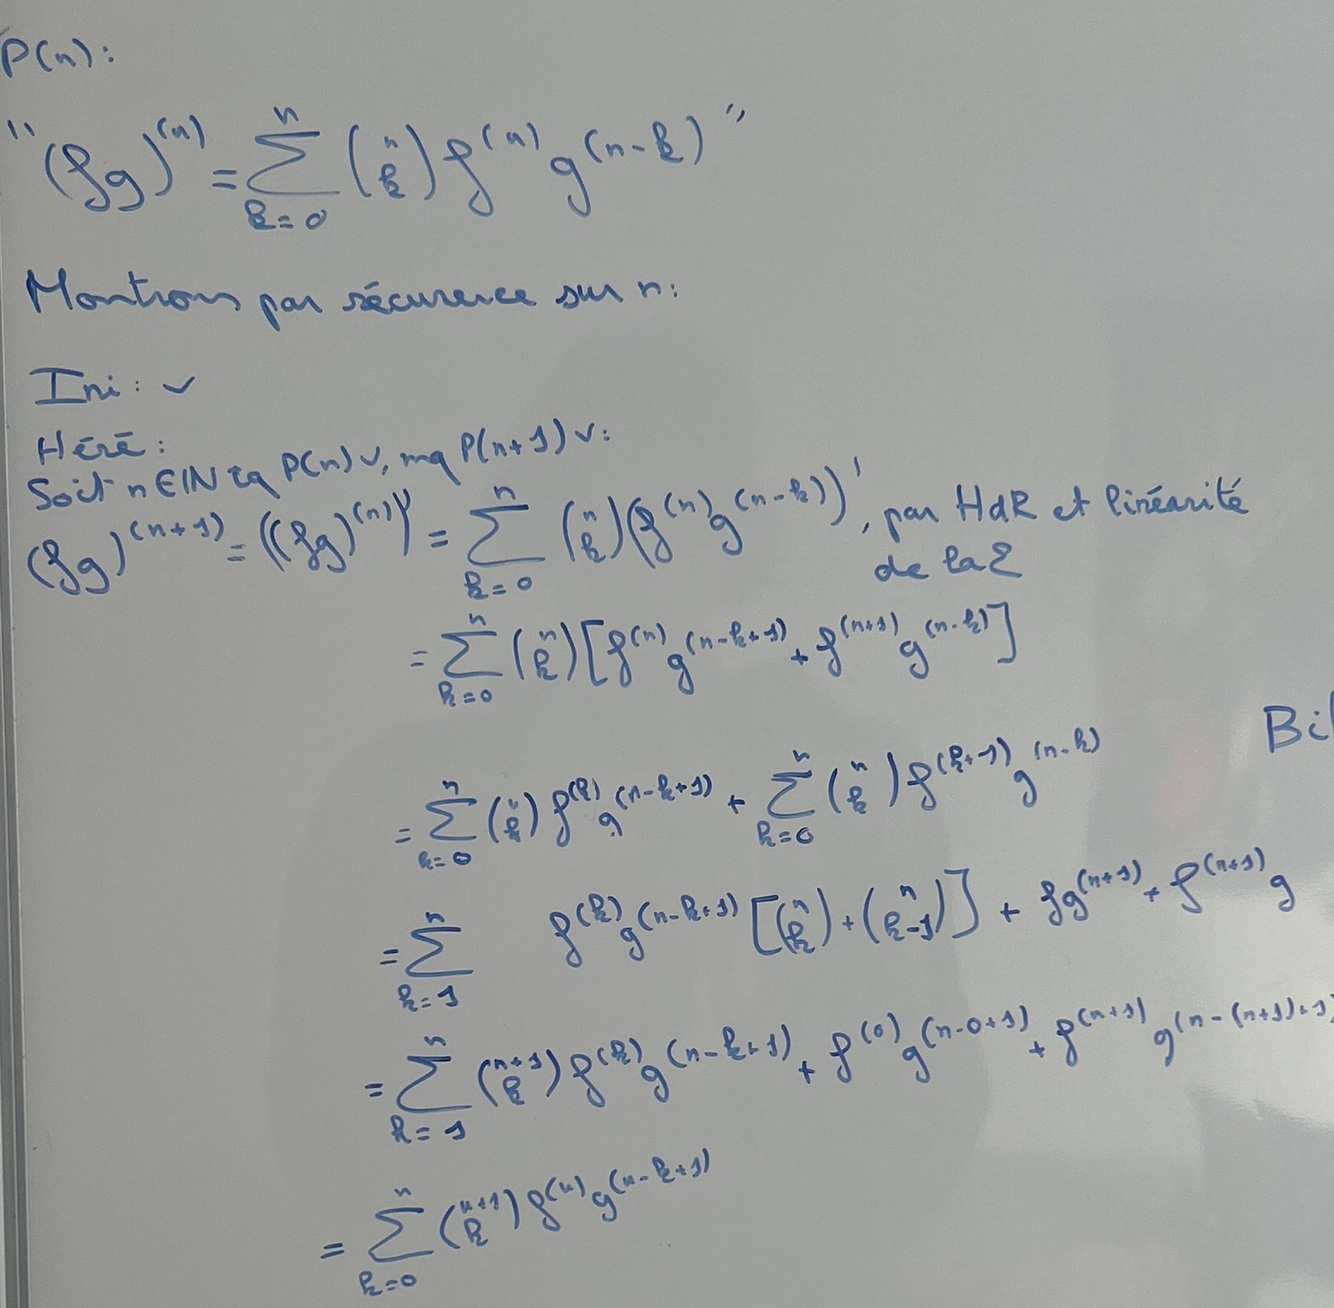 P(n):
"(fg)^(n) = ∑_{k=0}^{n} (n k) f^(n) g^(n-k)"
Montrons par récurence sur n:
Ini: ✓
Héré:
Soit n∈ℕ tq P(n) v, mq P(n+1) v:
(fg)^(n+1) = ((fg)^(n))' = ∑_{k=0}^{n} (n k) (f^(n) g^(n-k))', par HdR et linéarité
de la Σ
= ∑_{k=0}^{n} (n k) [f^(n) g^(n-k+1) + f^(n+1) g^(n-k)]
Bil
= ∑_{k=0}^{n} (n k) f^(k) g^(n-k+1) + ∑_{k=0}^{n} (n k) f^(k+1) g^(n-k)
= ∑_{k=1}^{n} f^(k) g^(n-k+1) [(n k) + (n k-1)] + fg^(n+1) + f^(n+1) g
= ∑_{k=1}^{n} (n+1 k) f^(k) g^(n-k+1) + f^(0) g^(n-0+1) + f^(n+1) g^(n-(n+1)+1)
= ∑_{k=0}^{n} (n+1 k) f^(n) g^(n-k+1)